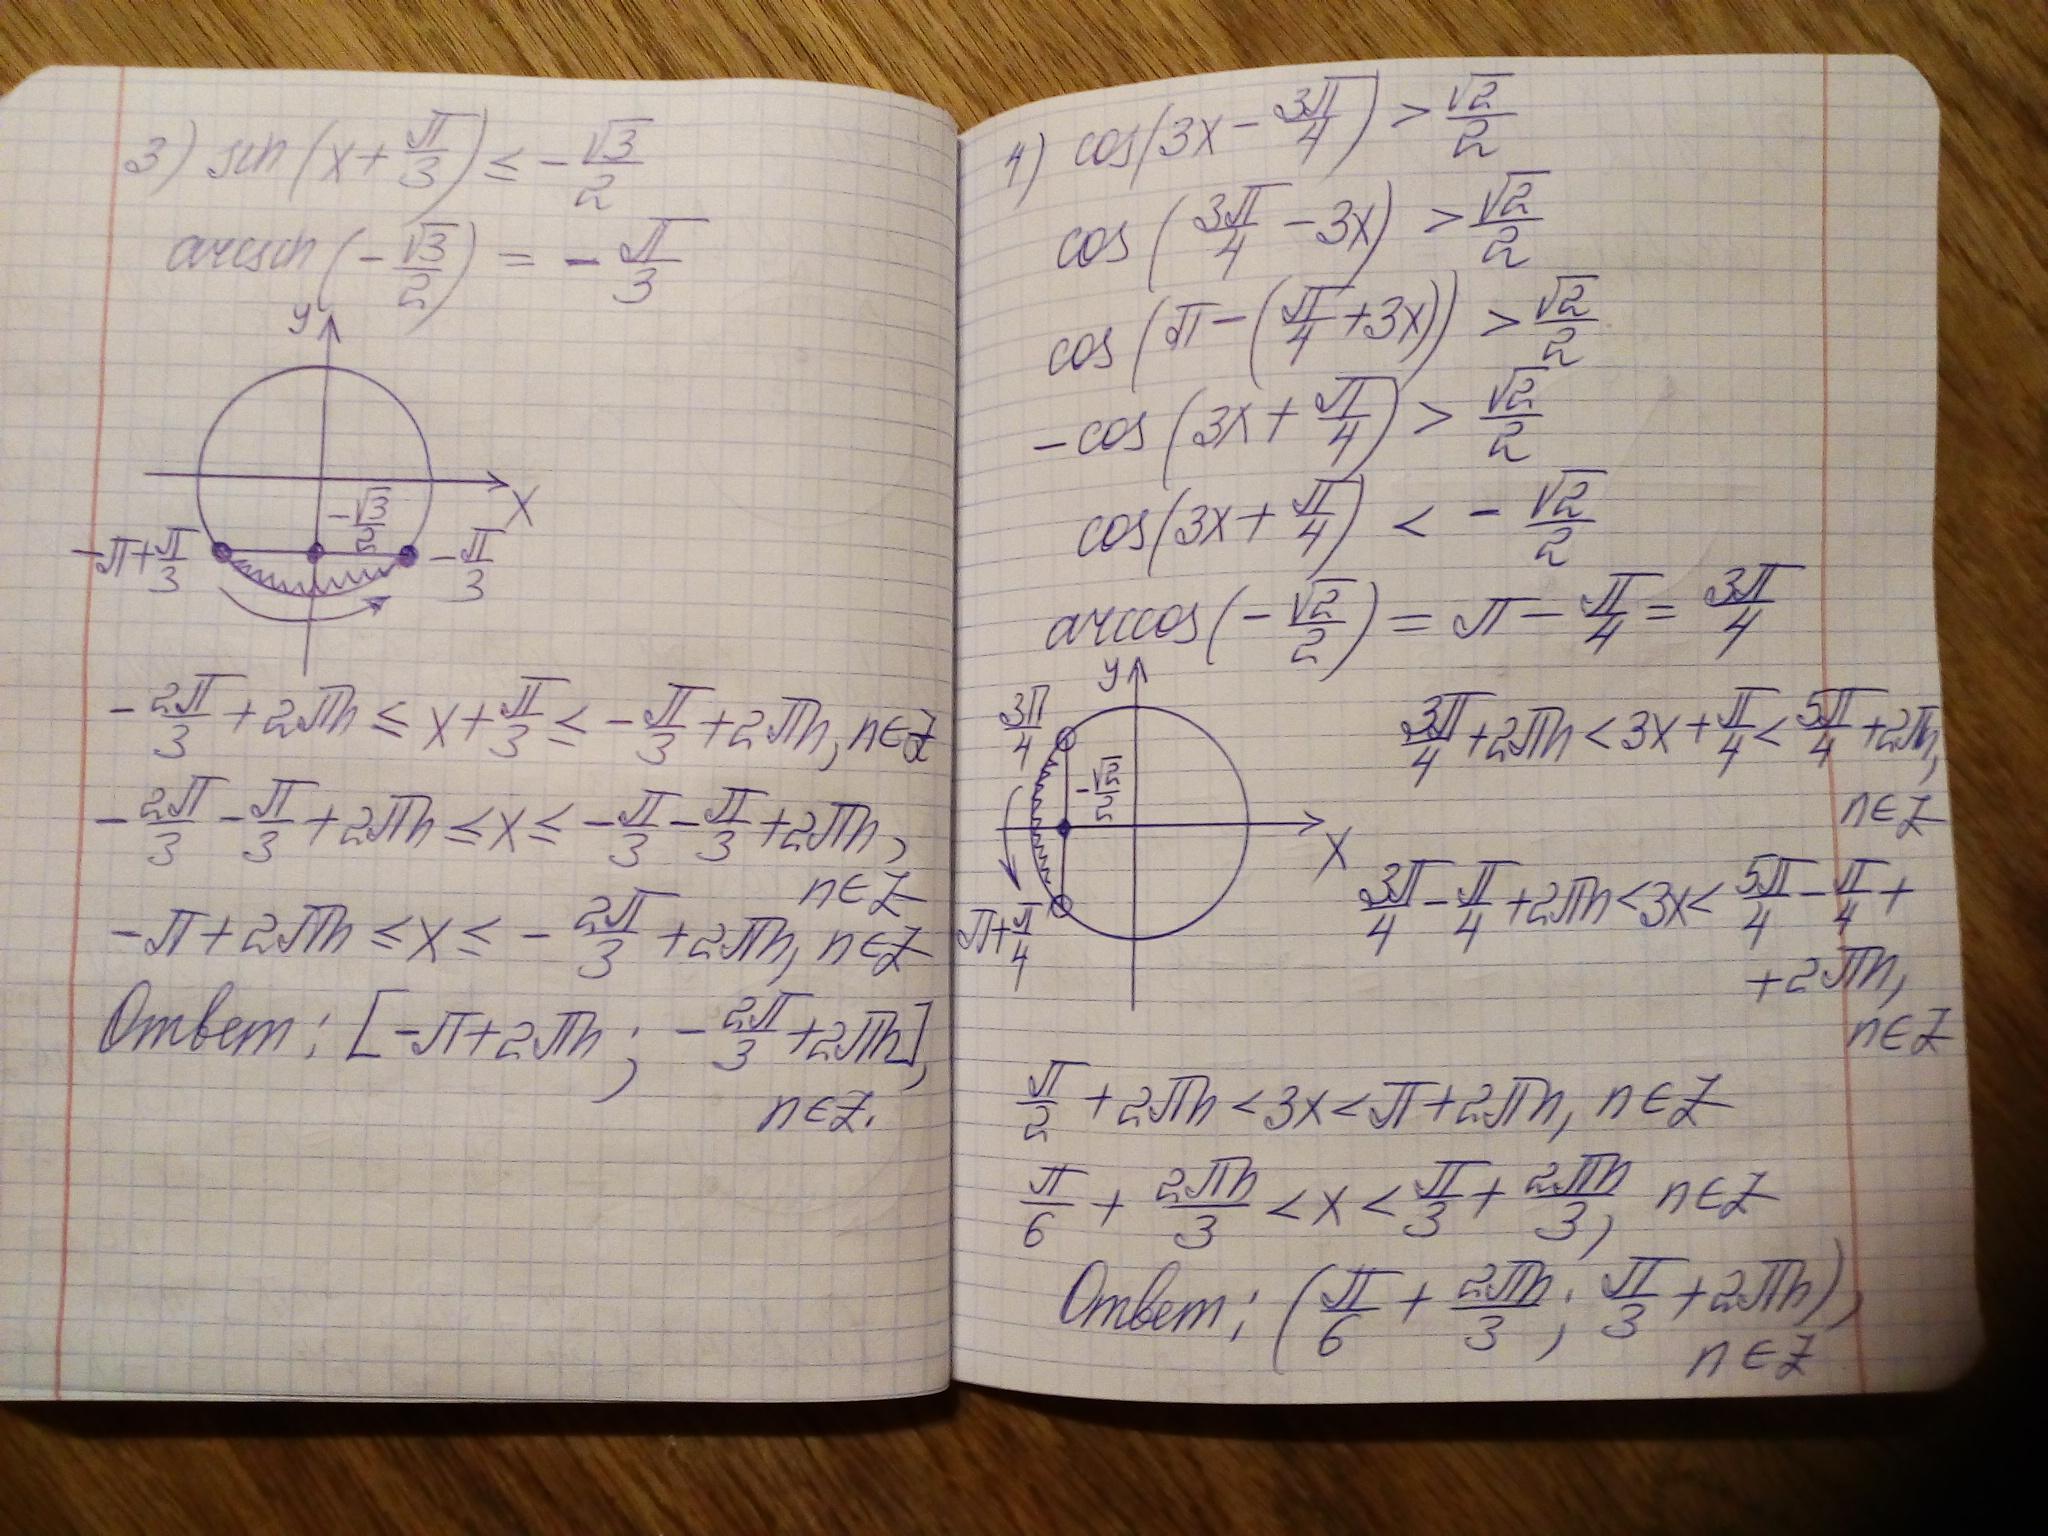 3) sin(x + π/3) ≤ - √3/2
arcsin(- √3/2) = - π/3
y
X
- √3/2
-π + π/3
- π/3
- 2π/3 + 2πn ≤ x + π/3 ≤ - π/3 + 2πn, n∈Z
- 2π/3 - π/3 + 2πn ≤ x ≤ - π/3 - π/3 + 2πn,
n∈Z
-π + 2πn ≤ x ≤ - 2π/3 + 2πn, n∈Z
Ответ: [-π + 2πn; - 2π/3 + 2πn],
n∈Z.
4) cos(3x - 3π/4) > √2/2
cos(3π/4 - 3x) > √2/2
cos(π - (π/4 + 3x)) > √2/2
-cos(3x + π/4) > √2/2
cos(3x + π/4) < - √2/2
arccos(- √2/2) = π - π/4 = 3π/4
y
3π/4
- √2/2
X
π + π/4
3π/4 + 2πn < 3x + π/4 < 5π/4 + 2πn,
n∈Z
3π/4 - π/4 + 2πn < 3x < 5π/4 - π/4 +
+ 2πn,
n∈Z
π/2 + 2πn < 3x < π + 2πn, n∈Z
π/6 + 2πn/3 < x < π/3 + 2πn/3, n∈Z
Ответ: (π/6 + 2πn/3; π/3 + 2πn),
n∈Z